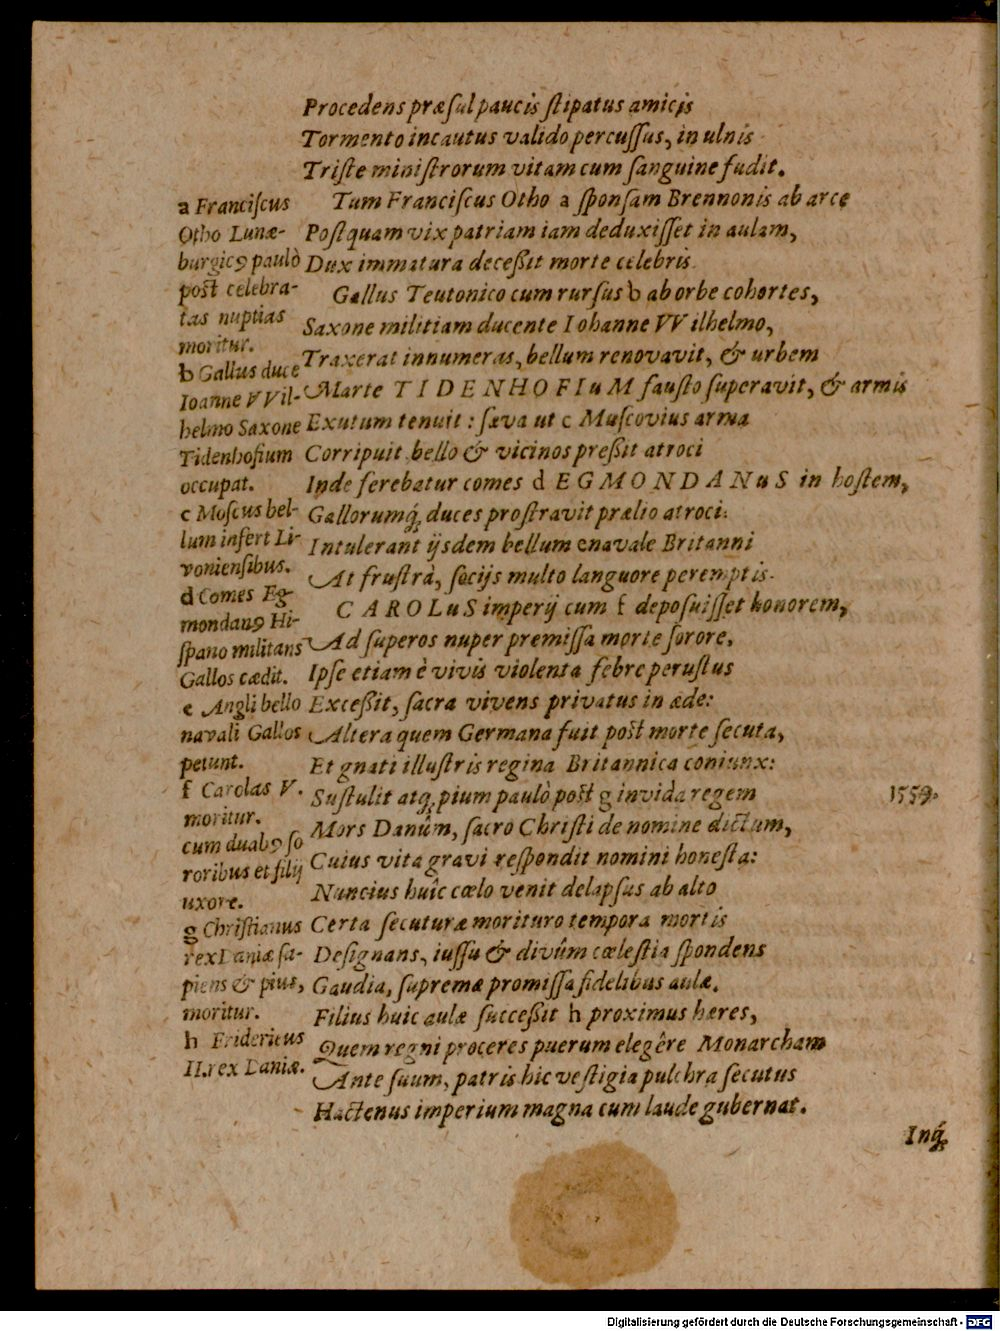 Procedens præſul paucis ſtipatus amicis
Tormento incautus valido percuſſus, in ulnis
Triſte miniſtrorum vitam cum ſanguine fudit.
Tum Franciſcus Otho a ſponſam Brennonis ab arce
Poſtquam vix patriam iam deduxiſſet in aulam,
Dux immatura deceßit morte celebris.
Gallus Teutonico cum rurſus b ab orbe cohortes,
Saxone militiam ducente Iohanne VVilhelmo,
Traxerat innumeras, bellum renovavit, & urbem
Marte TIDENHOFIuM fauſto ſuperavit, & armis
Exutum tenuit: ſæva ut c Muſcovius arma
Corripuit bello & vicinos preßit atroci
Inde ferebatur comes d EGMONDANuS in hoſtem,
Gallorumq́; duces proſtravit prælio atroci.
Intulerant ijsdem bellum e navale Britanni
At fruſtrà, ſocijs multo languore peremptis.
CAROLuS imperij cum f depoſuiſſet honorem,
Ad ſuperos nuper premiſſa morte ſorore,
Ipſe etiam è vivis violenta febre peruſtus
Exceßit, ſacra vivens privatus in æde:
Altera quem Germana fuit poſt morte ſecuta,
Et gnati illuſtris regina Britannica coniunx:
Suſtulit atq; pium paulò poſt g invida regem
Mors Danûm, ſacro Chriſti de nomine dictum,
Cuius vita gravi reſpondit nomini honeſta:
Nuncius huic cœlo venit delapſus ab alto
Certa ſecuturæ morituro tempora mortis
Deſignans, iuſſu & divûm cœleſtia ſpondens
Gaudia, ſupremæ promiſſa fidelibus aulæ.
Filius huic aulæ ſucceßit h proximus hæres,
Quem regni proceres puerum elegêre Monarcham
Ante ſuum, patris hic veſtigia pulchra ſecutus
Hactenus imperium magna cum laude gubernat.
Inq́;
a Franciſcus
Otho Lunæ-
burgicꝰ paulò
poſt celebra-
tas nuptias
moritur.
b Gallus duce
Ioanne VVil-
helmo Saxone
Tidenhofium
occupat.
c Moſcus bel-
lum infert Li-
vonienſibus.
d Comes Eg-
mondanꝰ Hi-
ſpano militans
Gallos cædit.
e Angli bello
navali Gallos
petunt.
f Carolas V.
moritur.
cum duabꝰ ſo
roribus et filij
uxore.
g Chriſtianus
rex Daniæ ſa-
piens & pius,
moritur.
h Fridericus
II. rex Daniæ.
1559.
Digitalisierung gefördert durch die Deutsche Forschungsgemeinschaft - DFG